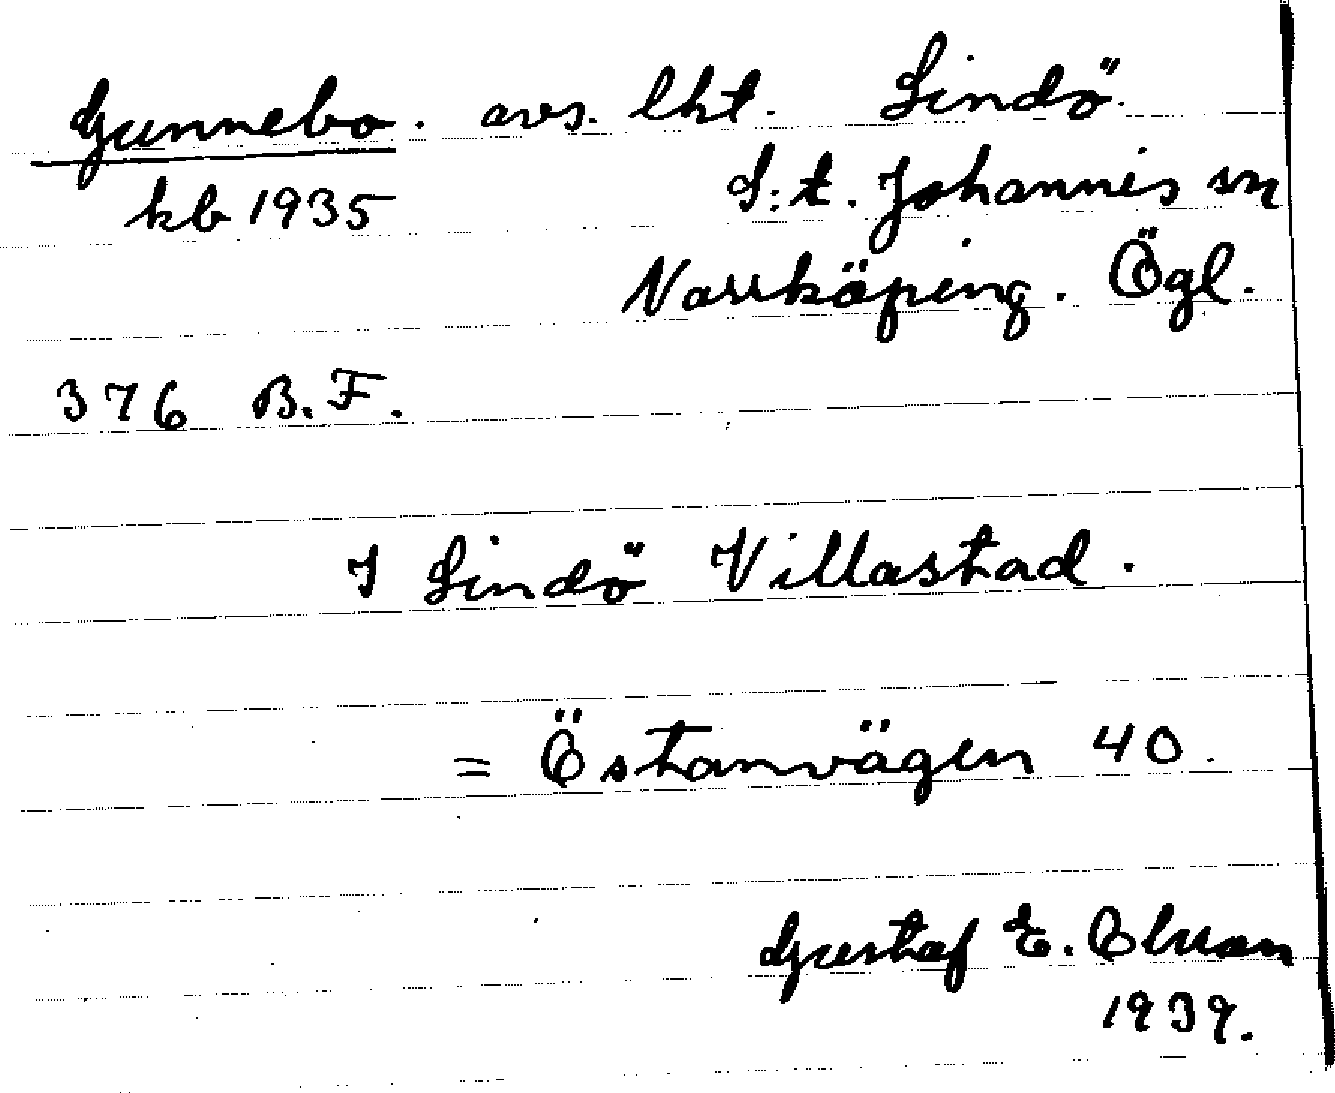 Gunnebo. avs. lht. Lindö.
kb 1935 S:t. Johannis sn
Norrköping. Ögl.
376 B.F.
I Lindö Villastad.
= Östanvägen 40.
Gustaf E. Olsson
1939.